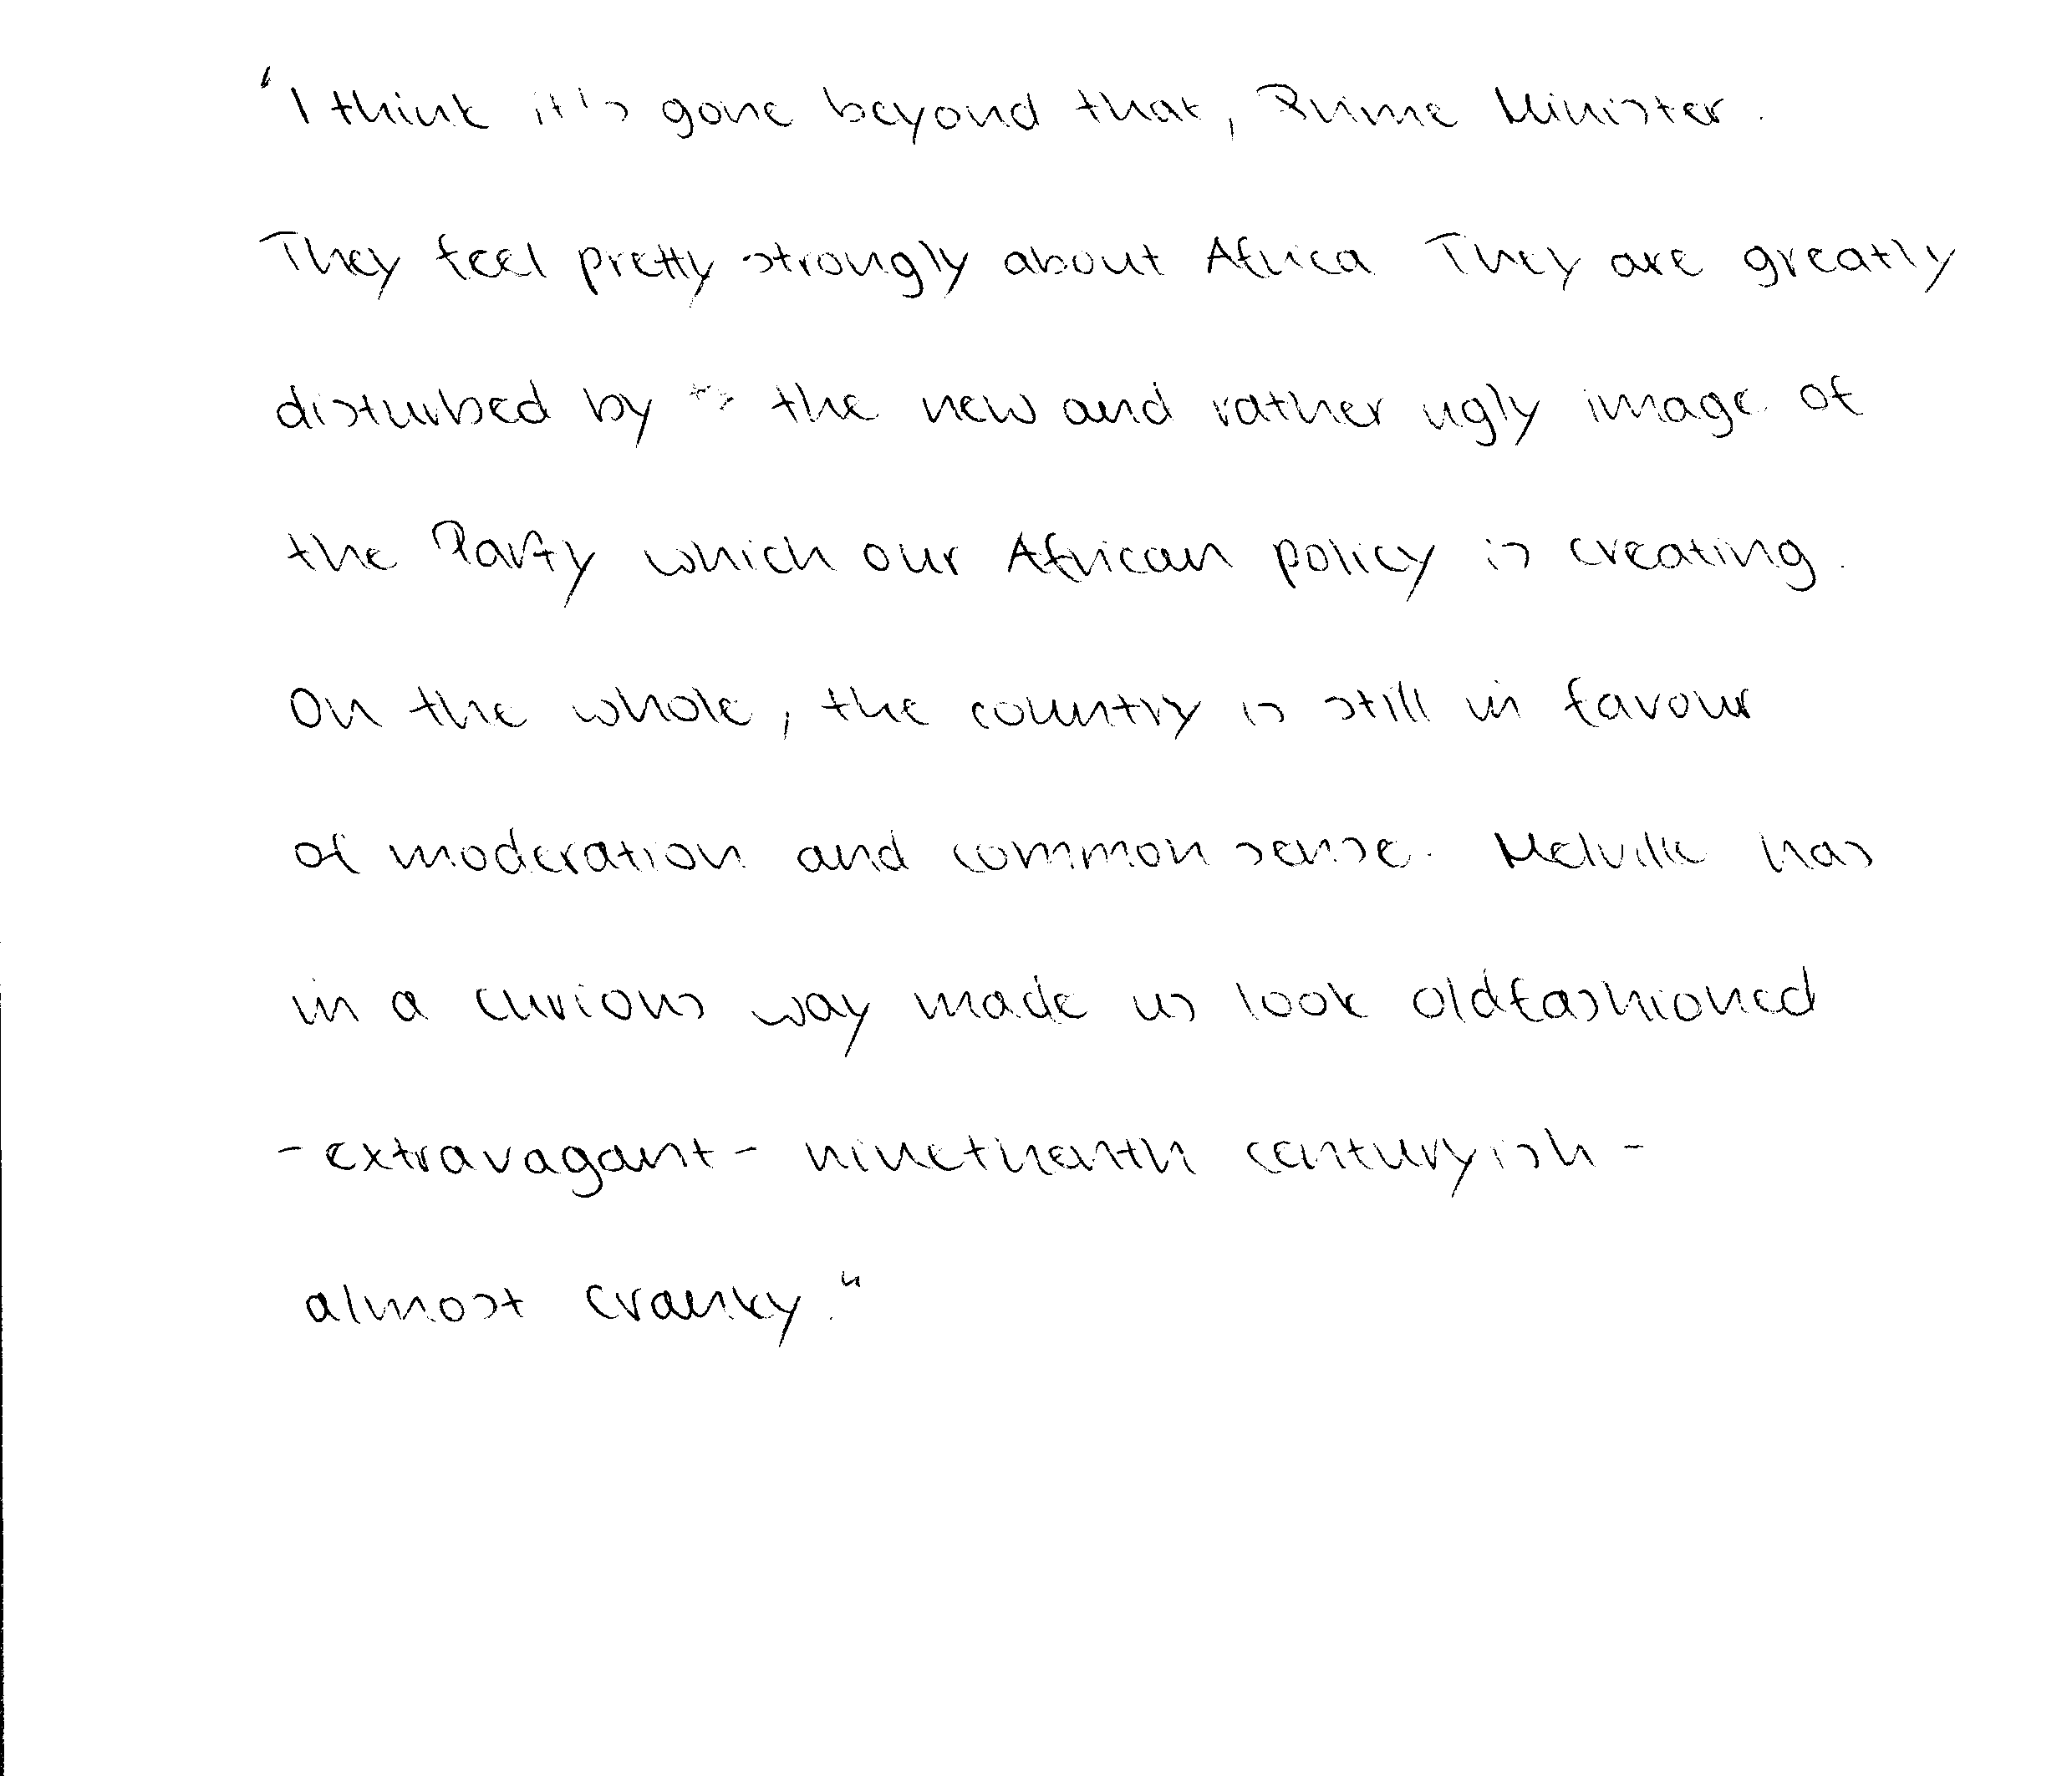 "I think it's gone beyond that, Prime Minister.
They feel pretty strongly about Africa They are greatly
disturbed by the new and rather ugly image of
the Party which our African policy is creating.
On the whole, the country is still in favour
of moderation and common sense. Melville has
in a curious way made us look oldfashioned
- extravagant - ninethenth centuryish -
almost cranky."